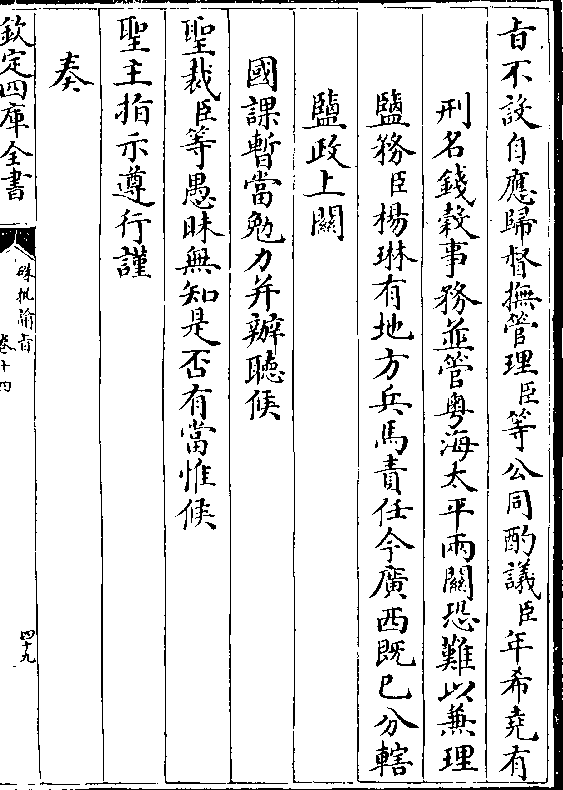 旨不設自應歸督撫管理臣等公同酌議臣年希堯有
刑名錢穀事務並管粤海太平兩關恐難以兼理
鹽務臣楊琳有地方兵馬責任今廣西既已分轄
鹽政上關
國課暫當勉力并辦聽候
聖裁臣等愚昧無知是否有當惟候
聖主指示遵行謹
奏
欽定四庫全書
硃批諭旨
卷十四
四十九